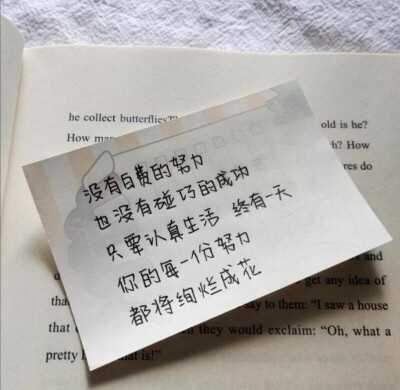 he collect butterflies?"
How
old is he?
h? How
res do
没有白费的努力
也没有碰巧的成功
只要认真生活 终有一天
你的每一份努力
都将绚烂成花
and
get any idea of
that
say to them: "I saw a house
they would exclaim: "Oh, what a
pretty
is!"